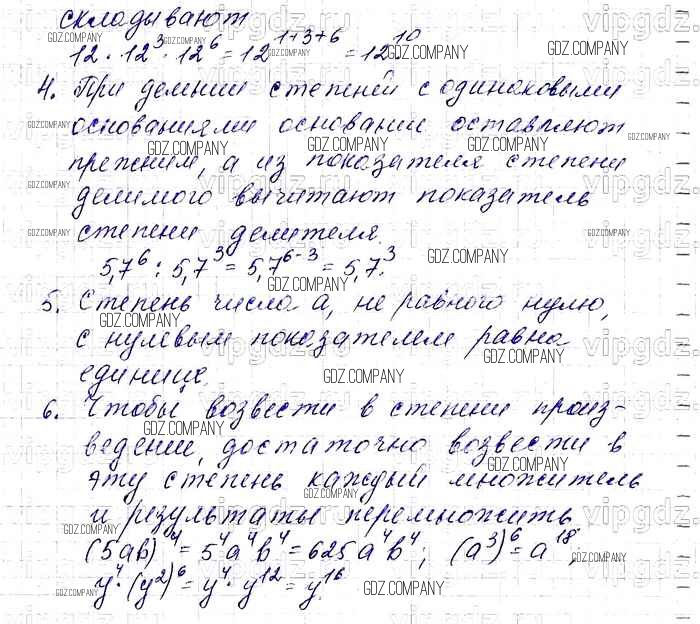 складывают
12 · 12³ · 12⁶ = 12¹⁺³⁺⁶ = 12¹⁰
4. При делении степеней с одинаковыми
основаниями основании оставляют
прежним, а из показателя степени
делимого вычитают показатель
степени делителя.
5,7⁶ : 5,7³ = 5,7⁶⁻³ = 5,7³.
5. Степень числа a, не равного нулю,
с нулевым показателем равна
единице.
6. Чтобы возвести в степени произ-
ведении, достаточно возвести в
эту степень каждый множитель
и результаты перемножить.
(5ab)⁴ = 5⁴a⁴b⁴ = 625a⁴b⁴; (a³)⁶ = a¹⁸;
y⁴ · (y²)⁶ = y⁴ · y¹² = y¹⁶.